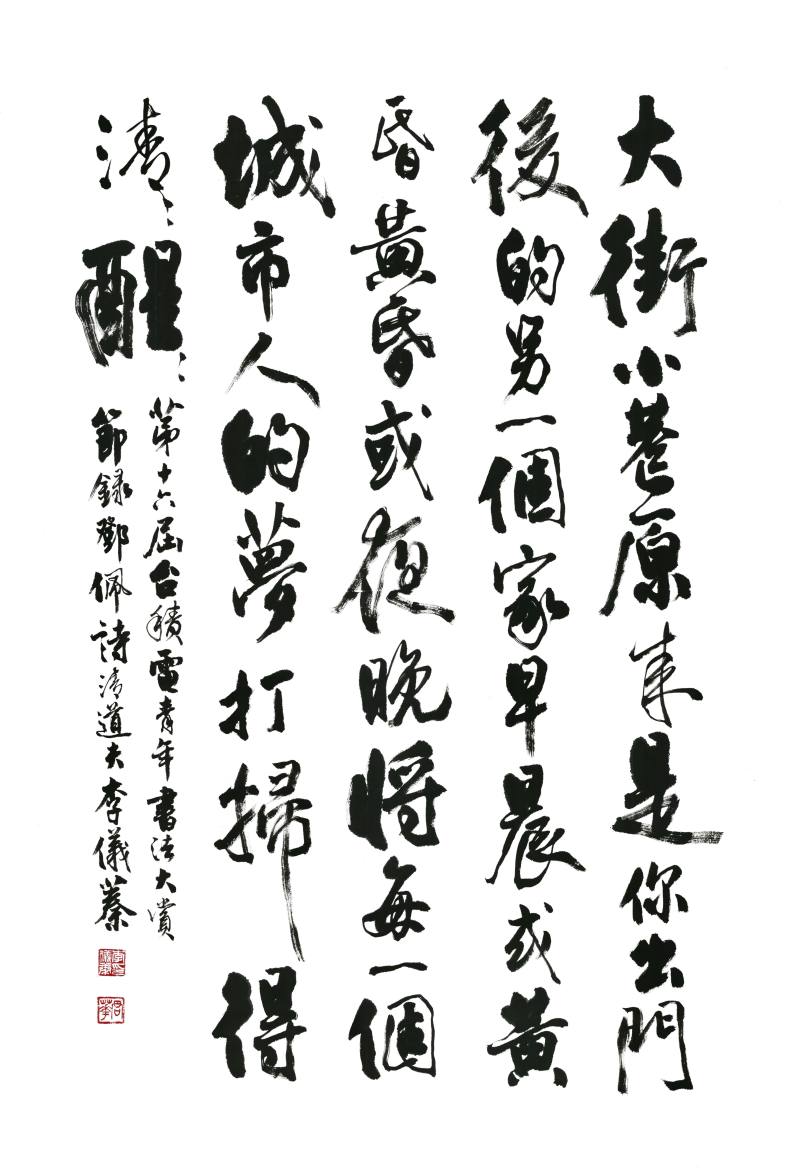 大街小巷原來是你出門
後的另一個家早晨或黃
昏黃昏或夜晚將每一個
城市人的夢打掃得
清〻醒〻
第十六屆台積電青年書法大賞
節錄鄧佩詩清道夫李儀蓁